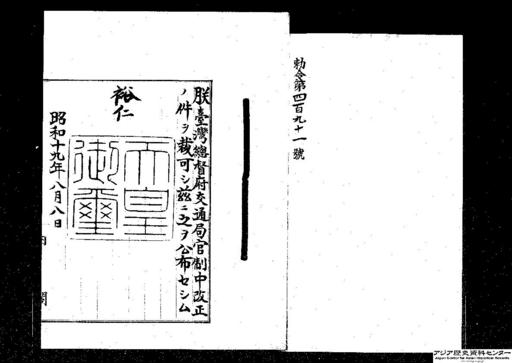 勅令第四百九十一號
朕臺灣總督府交通局官制中改正
ノ件ヲ裁可シ茲ニ之ヲ公布セシム
裕仁
天皇
御璽
昭和十九年八月八日
内閣
アジア歴史資料センター
Japan Center for Asian Historical Records